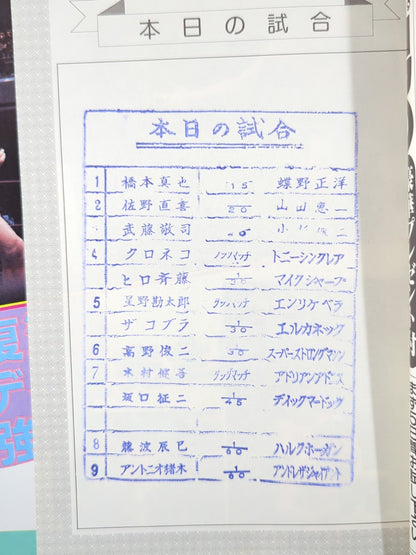 本日の試合
本日の試合
1 橋本真也 1/15 蝶野正洋
2 佐野直喜 1/20 山田恵一
武藤敬司 小杉俊二
4 クロネコ タッグマッチ トニーシンクレア
ヒロ斉藤 1/30 マイクシャープ
5 星野勘太郎 タッグマッチ エンリケベラ
ザコブラ 1/30 エルカネック
6 高野俊二 1/30 スーパーストロングマシン
7 木村健吾 タッグマッチ アドリアンアドニス
坂口征二 1/45 ディックマードック
8 藤波辰巳 1/60 ハルクホーガン
9 アントニオ猪木 1/60 アンドレザジャイアント
夏
デ
強